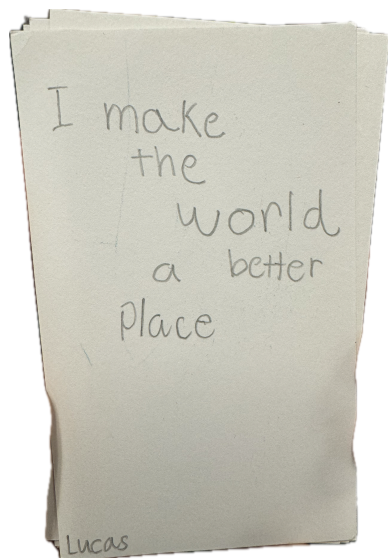 I make
the
world
a better
place
Lucas